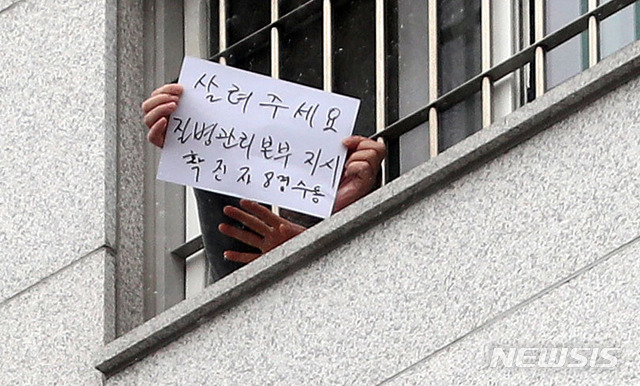 살려주세요
질병관리본부 지시
확진자 8명 수용
NEWSIS